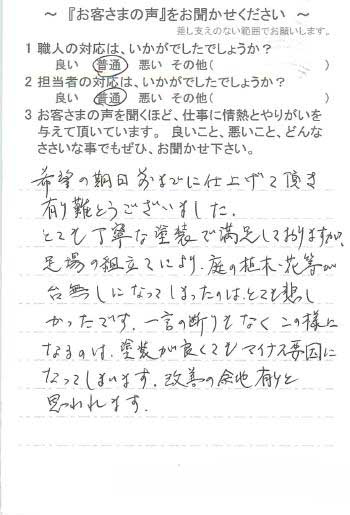 ～『お客さまの声』をお聞かせください ～
差し支えのない範囲でお願いします。
1 職人の対応は、いかがでしたでしょうか?
良い 普通 悪い その他( )
2 担当者の対応は、いかがでしたでしょうか?
良い 普通 悪い その他( )
3 お客さまの声を聞くほど、仕事に情熱とやりがいを
与えて頂いています。良いこと、悪いこと、どんな
ささいな事でもぜひ、お聞かせ下さい。
希望の期日前までに仕上げて頂き
有り難とうございました。
とても丁寧な塗装で満足しておりますが、
足場の組立てにより、庭の植木・花等が
台無しになってしまったのは、とても悲し
かったです。一言の断りもなく この様に
なるのは、塗装が良くてもマイナス要因に
なってしまいます。改善の余地有りと
思われます。